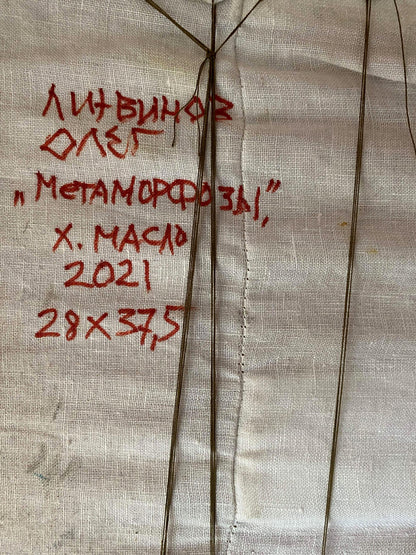 ЛИТВИНОВ
ОЛЕГ
„МЕТАМОРФОЗЫ,”
Х. МАСЛО
2021
28 Х 37,5